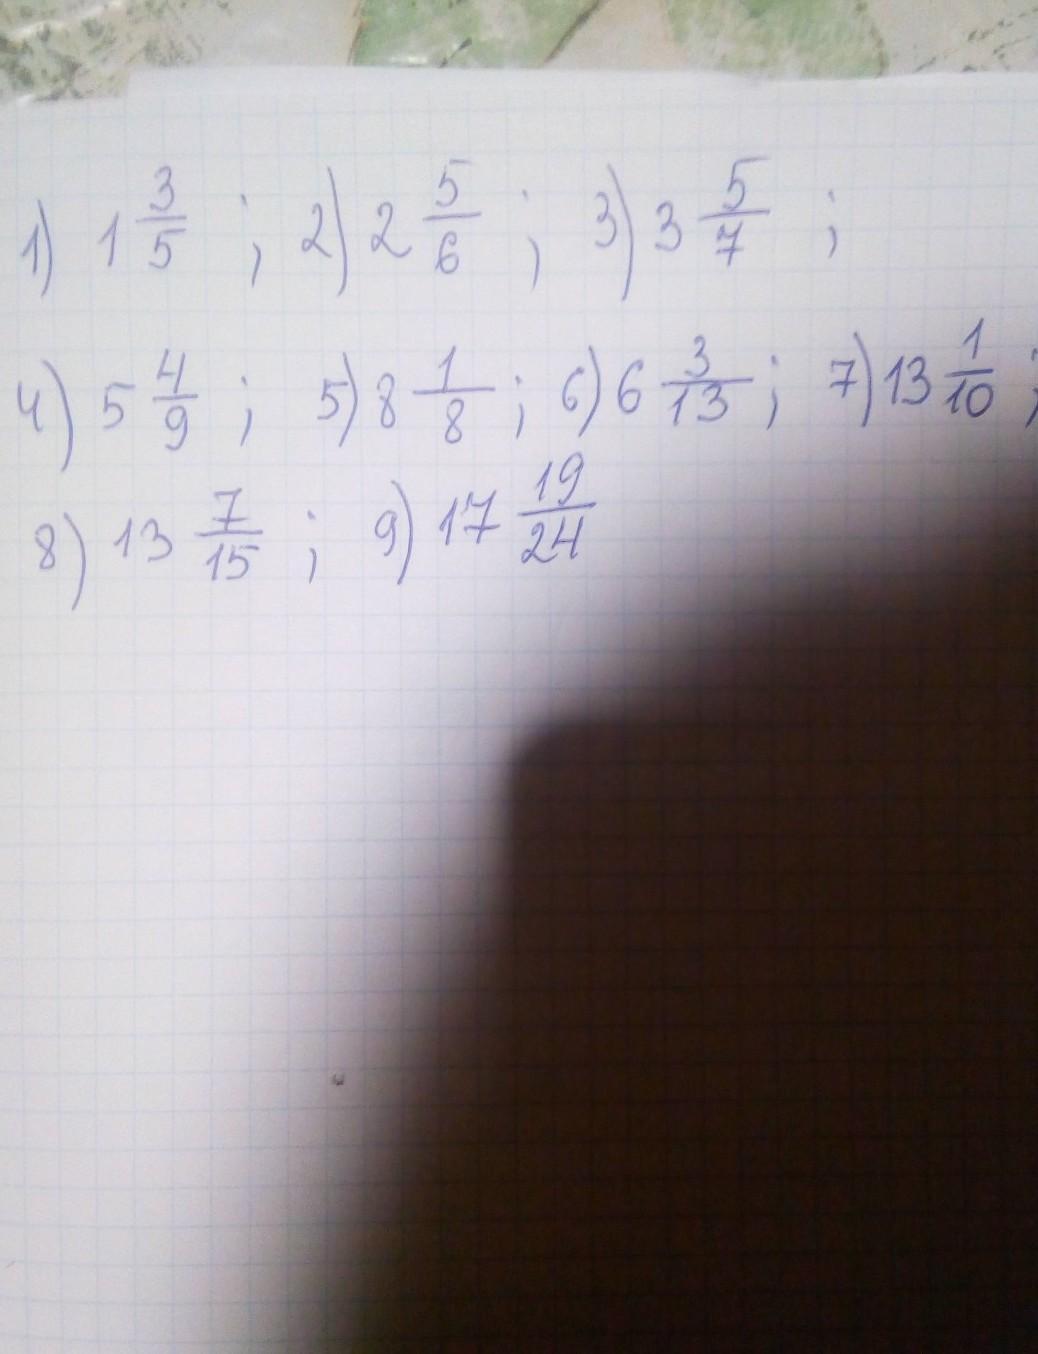 1) 1 3/5 ; 2) 2 5/6 ; 3) 3 5/7 ;
4) 5 4/9 ; 5) 8 1/8 ; 6) 6 3/13 ; 7) 13 1/10 ;
8) 13 7/15 ; 9) 17 19/24